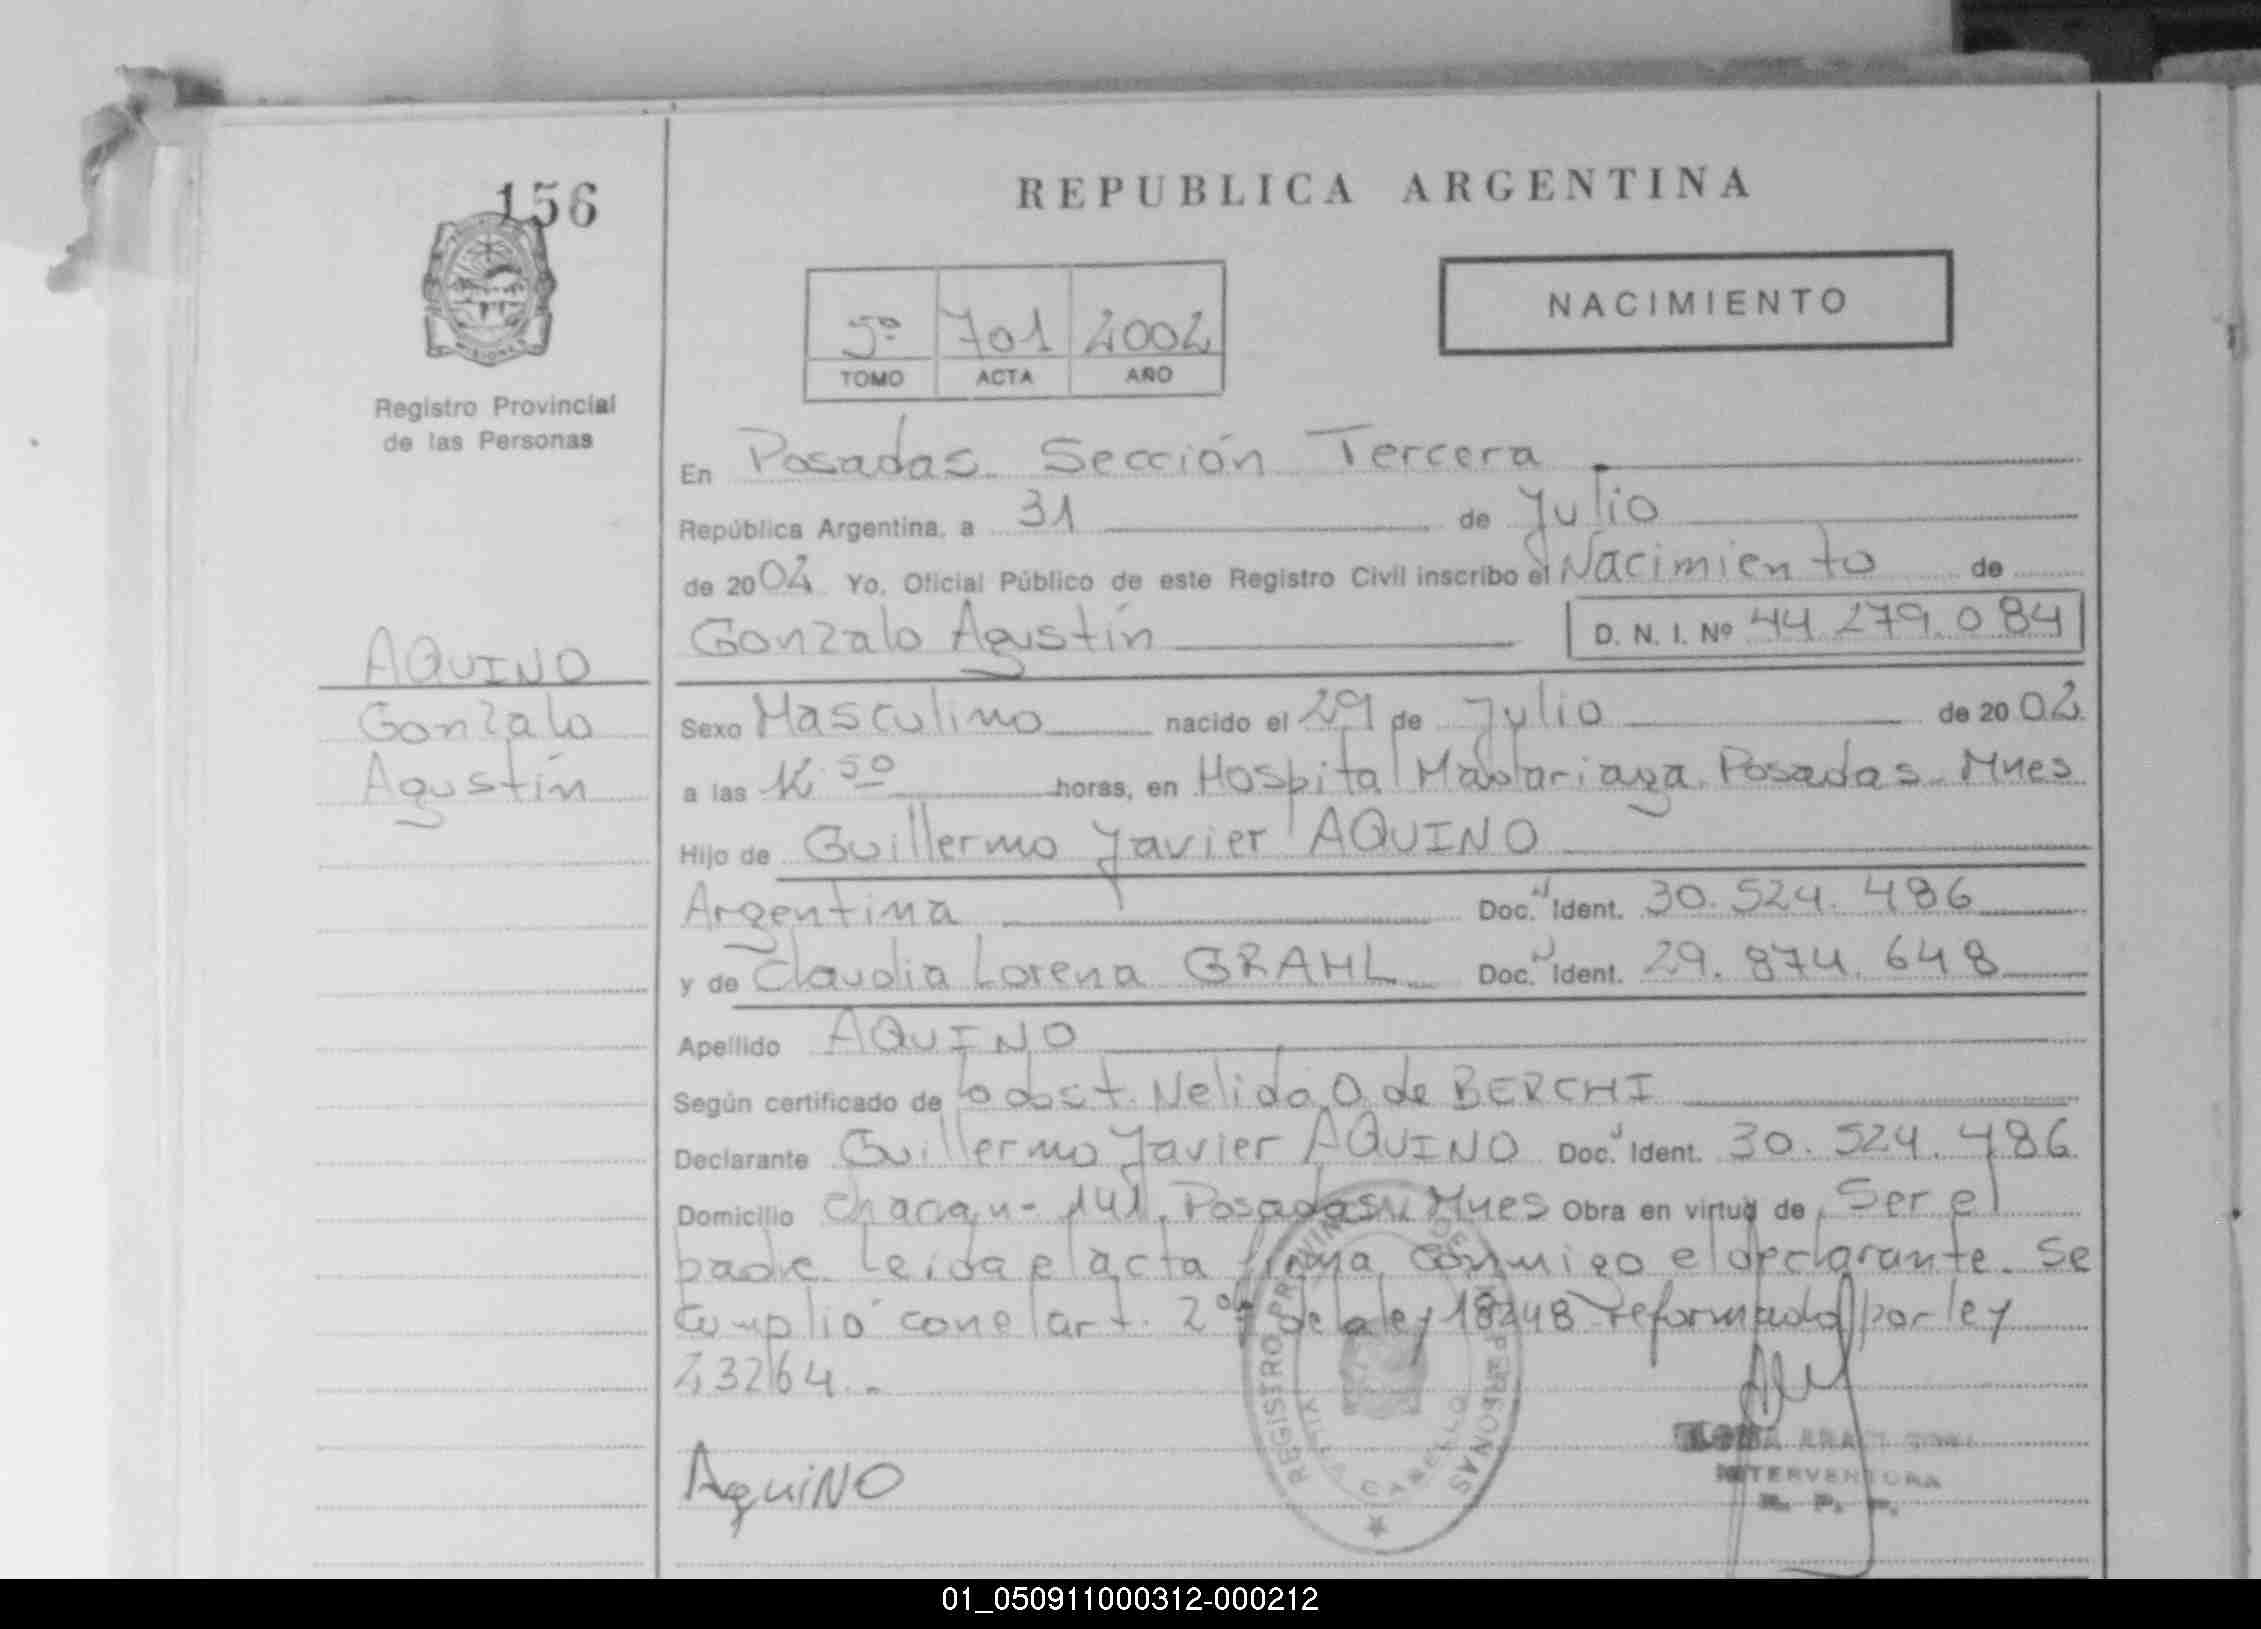 156
REPUBLICA ARGENTINA
NACIMIENTO
5º 701 2002
TOMO ACTA AÑO
MISIONES
Registro Provincial
de las Personas
En Posadas Sección Tercera
República Argentina, a 31 de Julio
de 2002 Yo, Oficial Público de este Registro Civil inscribo el Nacimiento de
Gonzalo Agustín D. N. I. Nº 44.279.084
AQUINO
Gonzalo
Agustín
Sexo Masculino nacido el 29 de Julio de 2002
a las horas, en Hospital Madariaga Posadas Mnes
Hijo de Guillermo Javier AQUINO
Argentina Doc. Ident. 30.524.486
y de Claudia Lorena GRAHL Doc. Ident. 29.874.648
Apellido AQUINO
Según certificado de obst. Nelida O. de BERCHI
Declarante Guillermo Javier AQUINO Doc. Ident. 30.524.486
Domicilio 141. Posadas Mnes Obra en virtud de Ser el
padre. Leida el acta firma conmigo el declarante. Se
cumplió con el art. 2º de la ley 18248 reformado por ley
23264.-
AquiNO
REGISTRO PROVINCIAL DE LAS PERSONAS
VILLA CABELLO
INTERVENTORA
R. P. P.
01_050911000312-000212